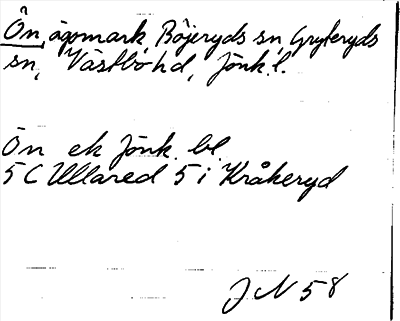 Ön, ägomark, Böjeryds sn, Gryteryds
sn, Västbo hd, Jönk. l.
Ön ek Jönk. bl.
5 C Ullared 5 i Kråkeryd
J N 58